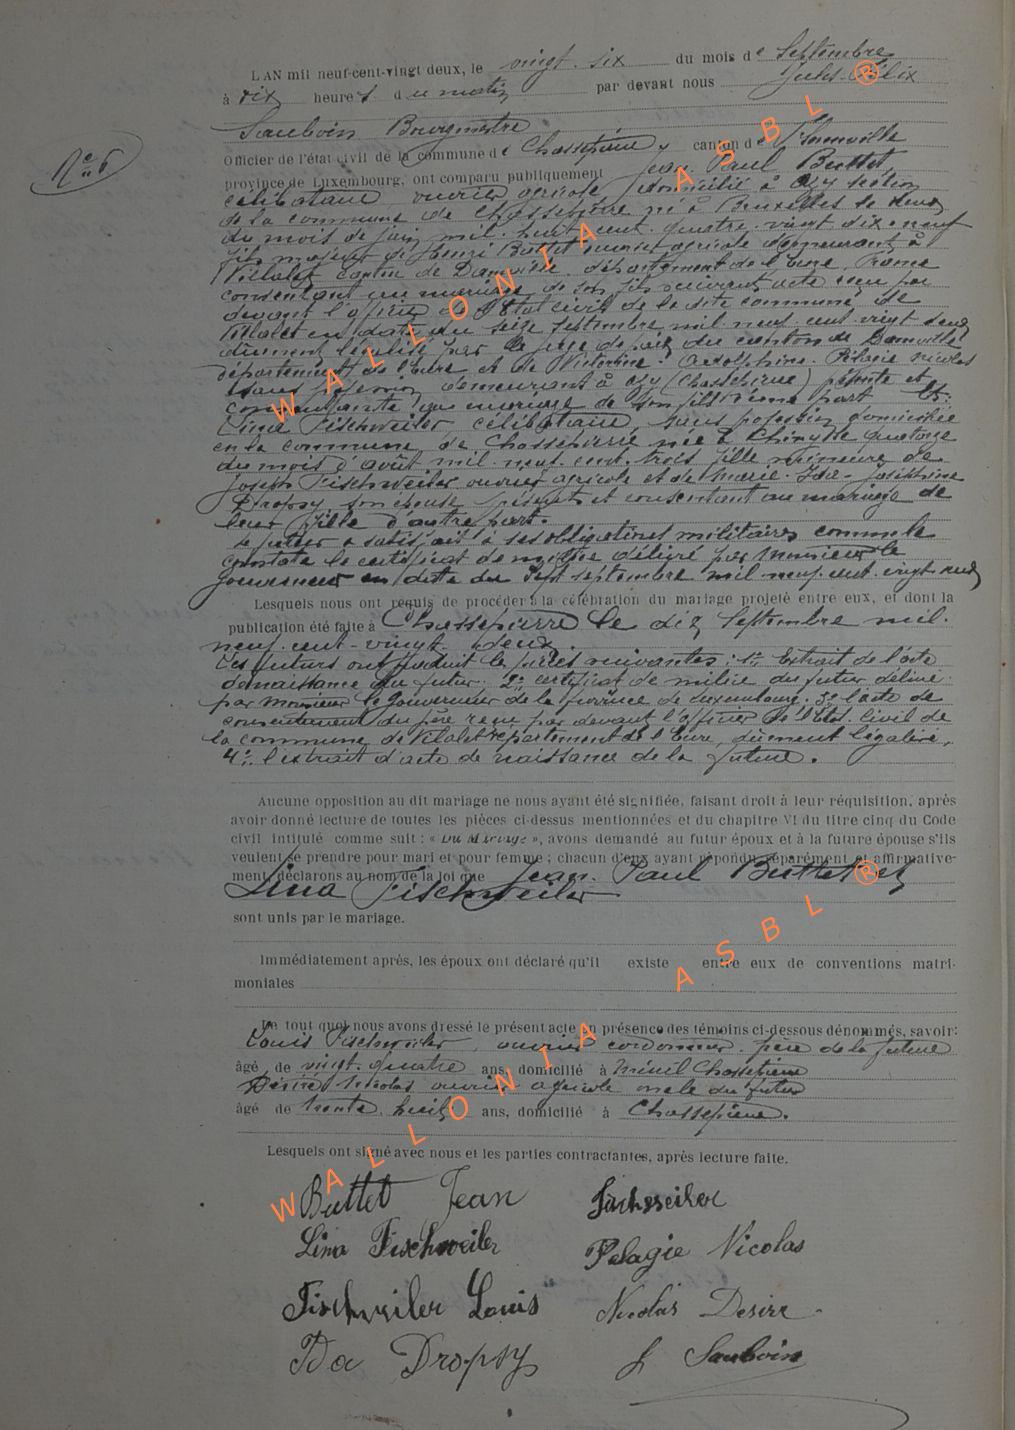 N° 6
L'AN mil neuf-cent-vingt deux, le vingt-six du mois de Septembre
à dix heures du matin par devant nous Jules-Félix
Sauboin Bourgmestre
Officier de l'état civil de la commune de Chassepierre, canton de Florenville
province de Luxembourg, ont comparu publiquement Jean Paul Buttet,
célibataire, ouvrier agricole domicilié à Azy section
de la commune de Chassepierre né à Bruxelles le deux
du mois de juin mil-huit-cent-quatre-vingt dix-neuf
fils majeur de Henri Buttet ouvrier agricole demeurant à
Villalet canton de Damville, département de l'Eure, France
consentant au mariage de son fils suivant acte reçu par
devant l'officier de l'Etat civil de la dite commune de
Villalet en date du seize septembre mil-neuf-cent-vingt deux
dûment légalisé par le juge de paix du canton de Damville
département de l'Eure et de Victorine-Adolphine-Pélagie Nicolas
sans profession demeurant à Azy (Chassepierre) présente et
consentante au mariage de son fils d'une part Et:
Lina Fischweiler célibataire, sans profession domiciliée
en la commune de Chassepierre née à le quatorze
du mois d'août mil-neuf-cent-trois fille mineure de
Joseph Fischweiler ouvrier agricole et de Marie-Ida-Joséphine
Dropsy son épouse présents et consentant au mariage de
leur fille d'autre part.
Le futur a satisfait à ses obligations militaires comme le
constate le certificat de milice délivré par Monsieur le
Gouverneur en date du sept septembre mil-neuf-cent-vingt-deux
Lesquels nous ont requis de procéder à la célébration du mariage projeté entre eux, et dont la
publication été faite à Chassepierre le dix Septembre mil-
neuf-cent-vingt-deux.
Les futurs ont produit les pièces suivantes: 1° Extrait de l'acte
de naissance du futur. 2° certificat de milice du futur délivré
par Monsieur le Gouverneur de la province de Luxembourg. 3° l'acte de
consentement du père reçu par devant l'officier de l'Etat-Civil de
la commune de Villalet département de l'Eure, dûment légalisé,
4° l'extrait d'acte de naissance de la future.
Aucune opposition au dit mariage ne nous ayant été signifiée, faisant droit à leur réquisition, après
avoir donné lecture de toutes les pièces ci-dessus mentionnées et du chapitre VI du titre cinq du Code
civil intitulé comme suit: « Du Mariage », avons demandé au futur époux et à la future épouse s'ils
veulent se prendre pour mari et pour femme; chacun d'eux ayant répondu séparément et affirmative-
ment, déclarons au nom de la loi que Jean-Paul Buttet et
Lina Fischweiler
sont unis par le mariage.
Immédiatement après, les époux ont déclaré qu'il existe entre eux de conventions matri-
moniales
De tout quoi nous avons dressé le présent acte en présence des témoins ci-dessous dénommés, savoir:
Louis Fischweiler, ouvrier cordonnier, frère de la future
âgé de vingt-quatre ans, domicilié à Menil Chassepierre
Désiré Nicolas ouvrier agricole oncle du futur
âgé de trente-huit ans, domicilié à Chassepierre.
Lesquels ont signé avec nous et les parties contractantes, après lecture faite.
Buttet Jean Fischweiler
Lina Fischweiler Pelagie Nicolas
Fischweiler Louis Nicolas Desire
Ida Dropsy J Sauboin
WALLONIA ASBL ®
WALLONIA ASBL ®